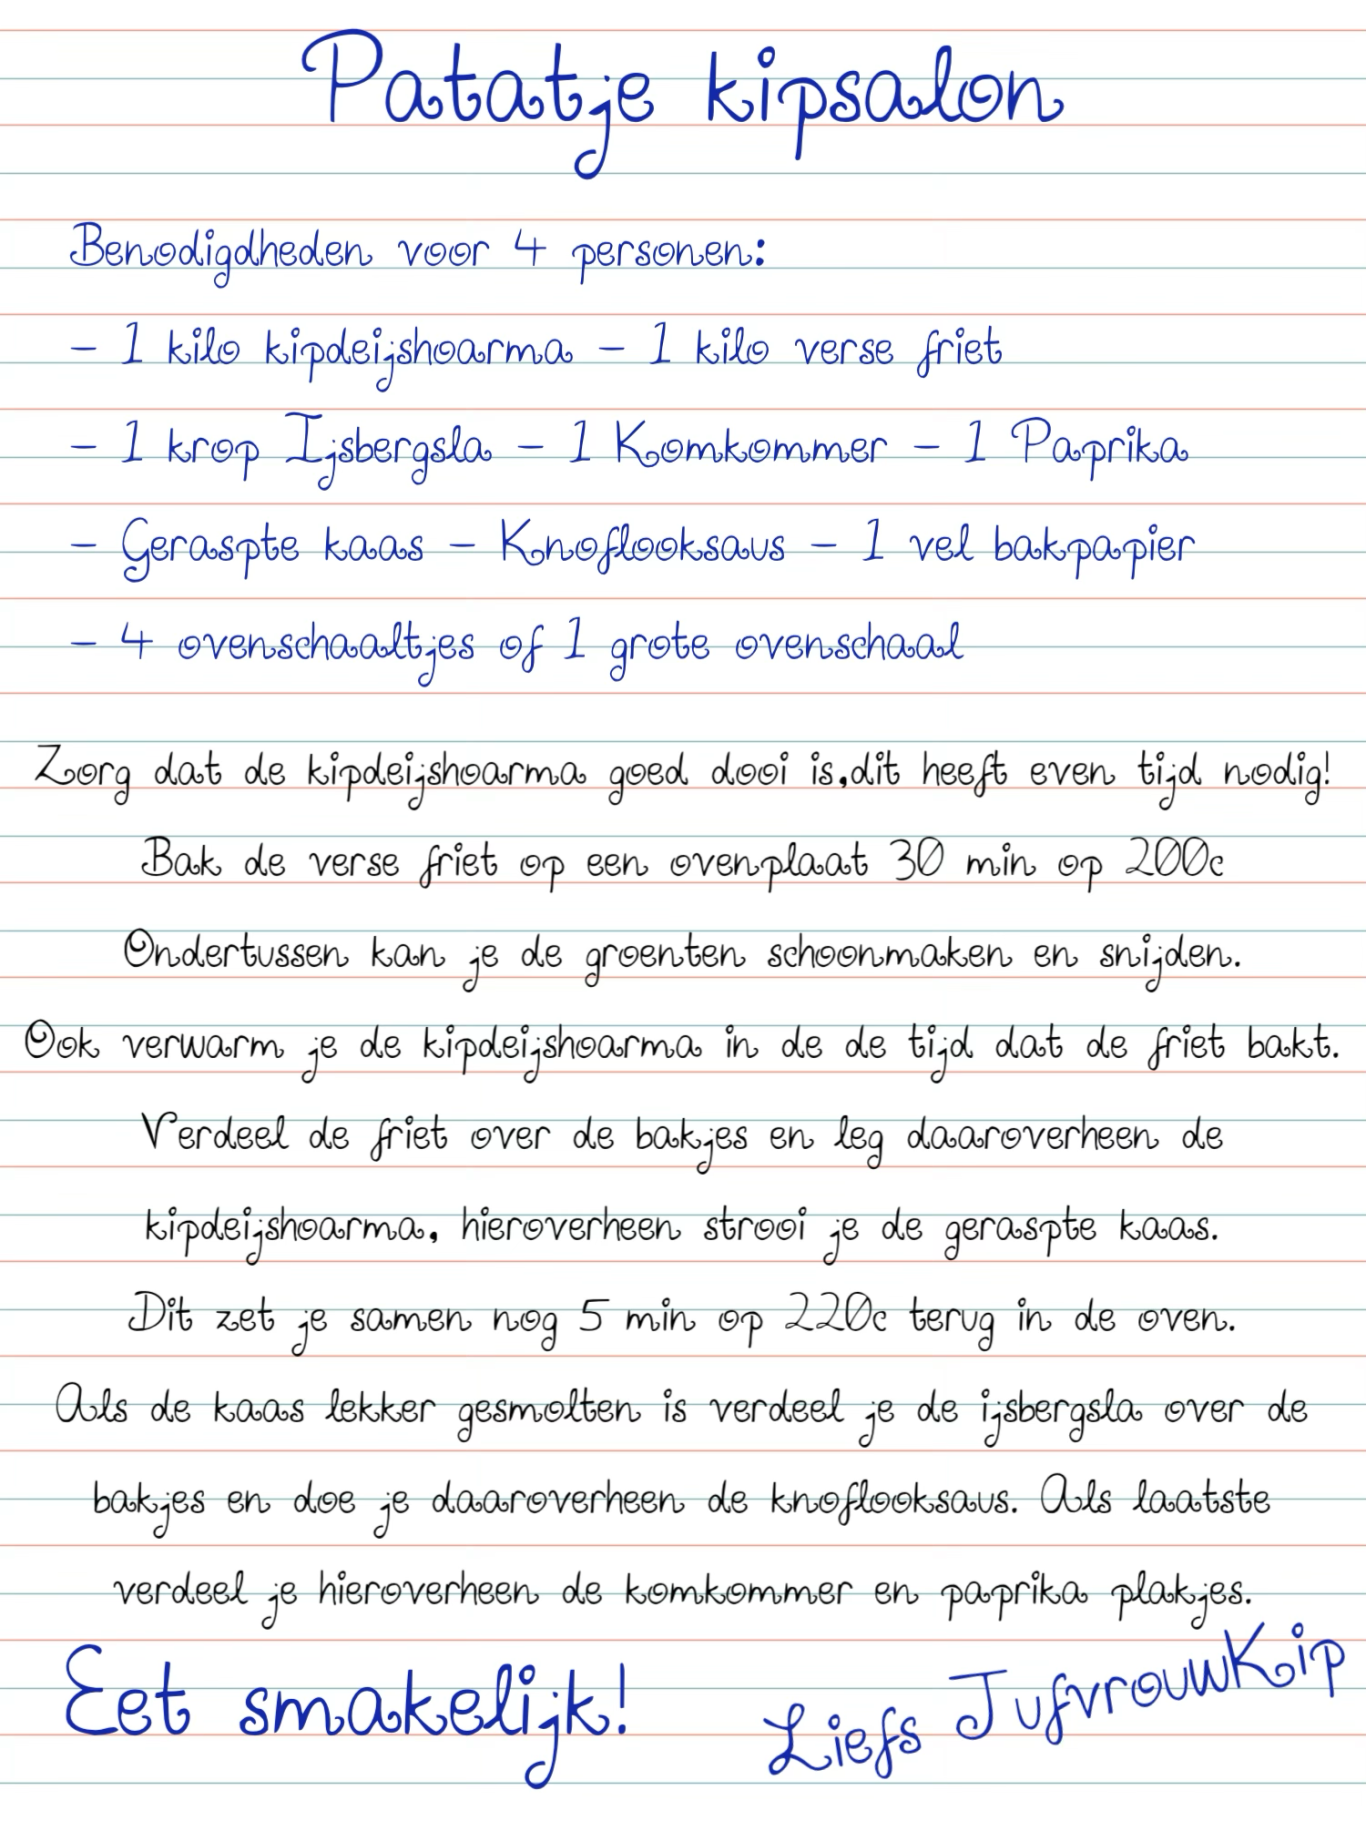 Patatje kipsalon
Benodigdheden voor 4 personen:
- 1 kilo kipdeijshoarma - 1 kilo verse friet
- 1 krop Ijsbergsla - 1 Komkommer - 1 Paprika
- Geraspte kaas - Knoflooksaus - 1 vel bakpapier
- 4 ovenschaaltjes of 1 grote ovenschaal
Zorg dat de kipdeijshoarma goed dooi is,dit heeft even tijd nodig!
Bak de verse friet op een ovenplaat 30 min op 200c
Ondertussen kan je de groenten schoonmaken en snijden.
Ook verwarm je de kipdeijshoarma in de de tijd dat de friet bakt.
Verdeel de friet over de bakjes en leg daaroverheen de
kipdeijshoarma, hieroverheen strooi je de geraspte kaas.
Dit zet je samen nog 5 min op 220c terug in de oven.
Als de kaas lekker gesmolten is verdeel je de ijsbergsla over de
bakjes en doe je daaroverheen de knoflooksaus. Als laatste
verdeel je hieroverheen de komkommer en paprika plakjes.
Eet smakelijk!
Liefs JufvrouwKip